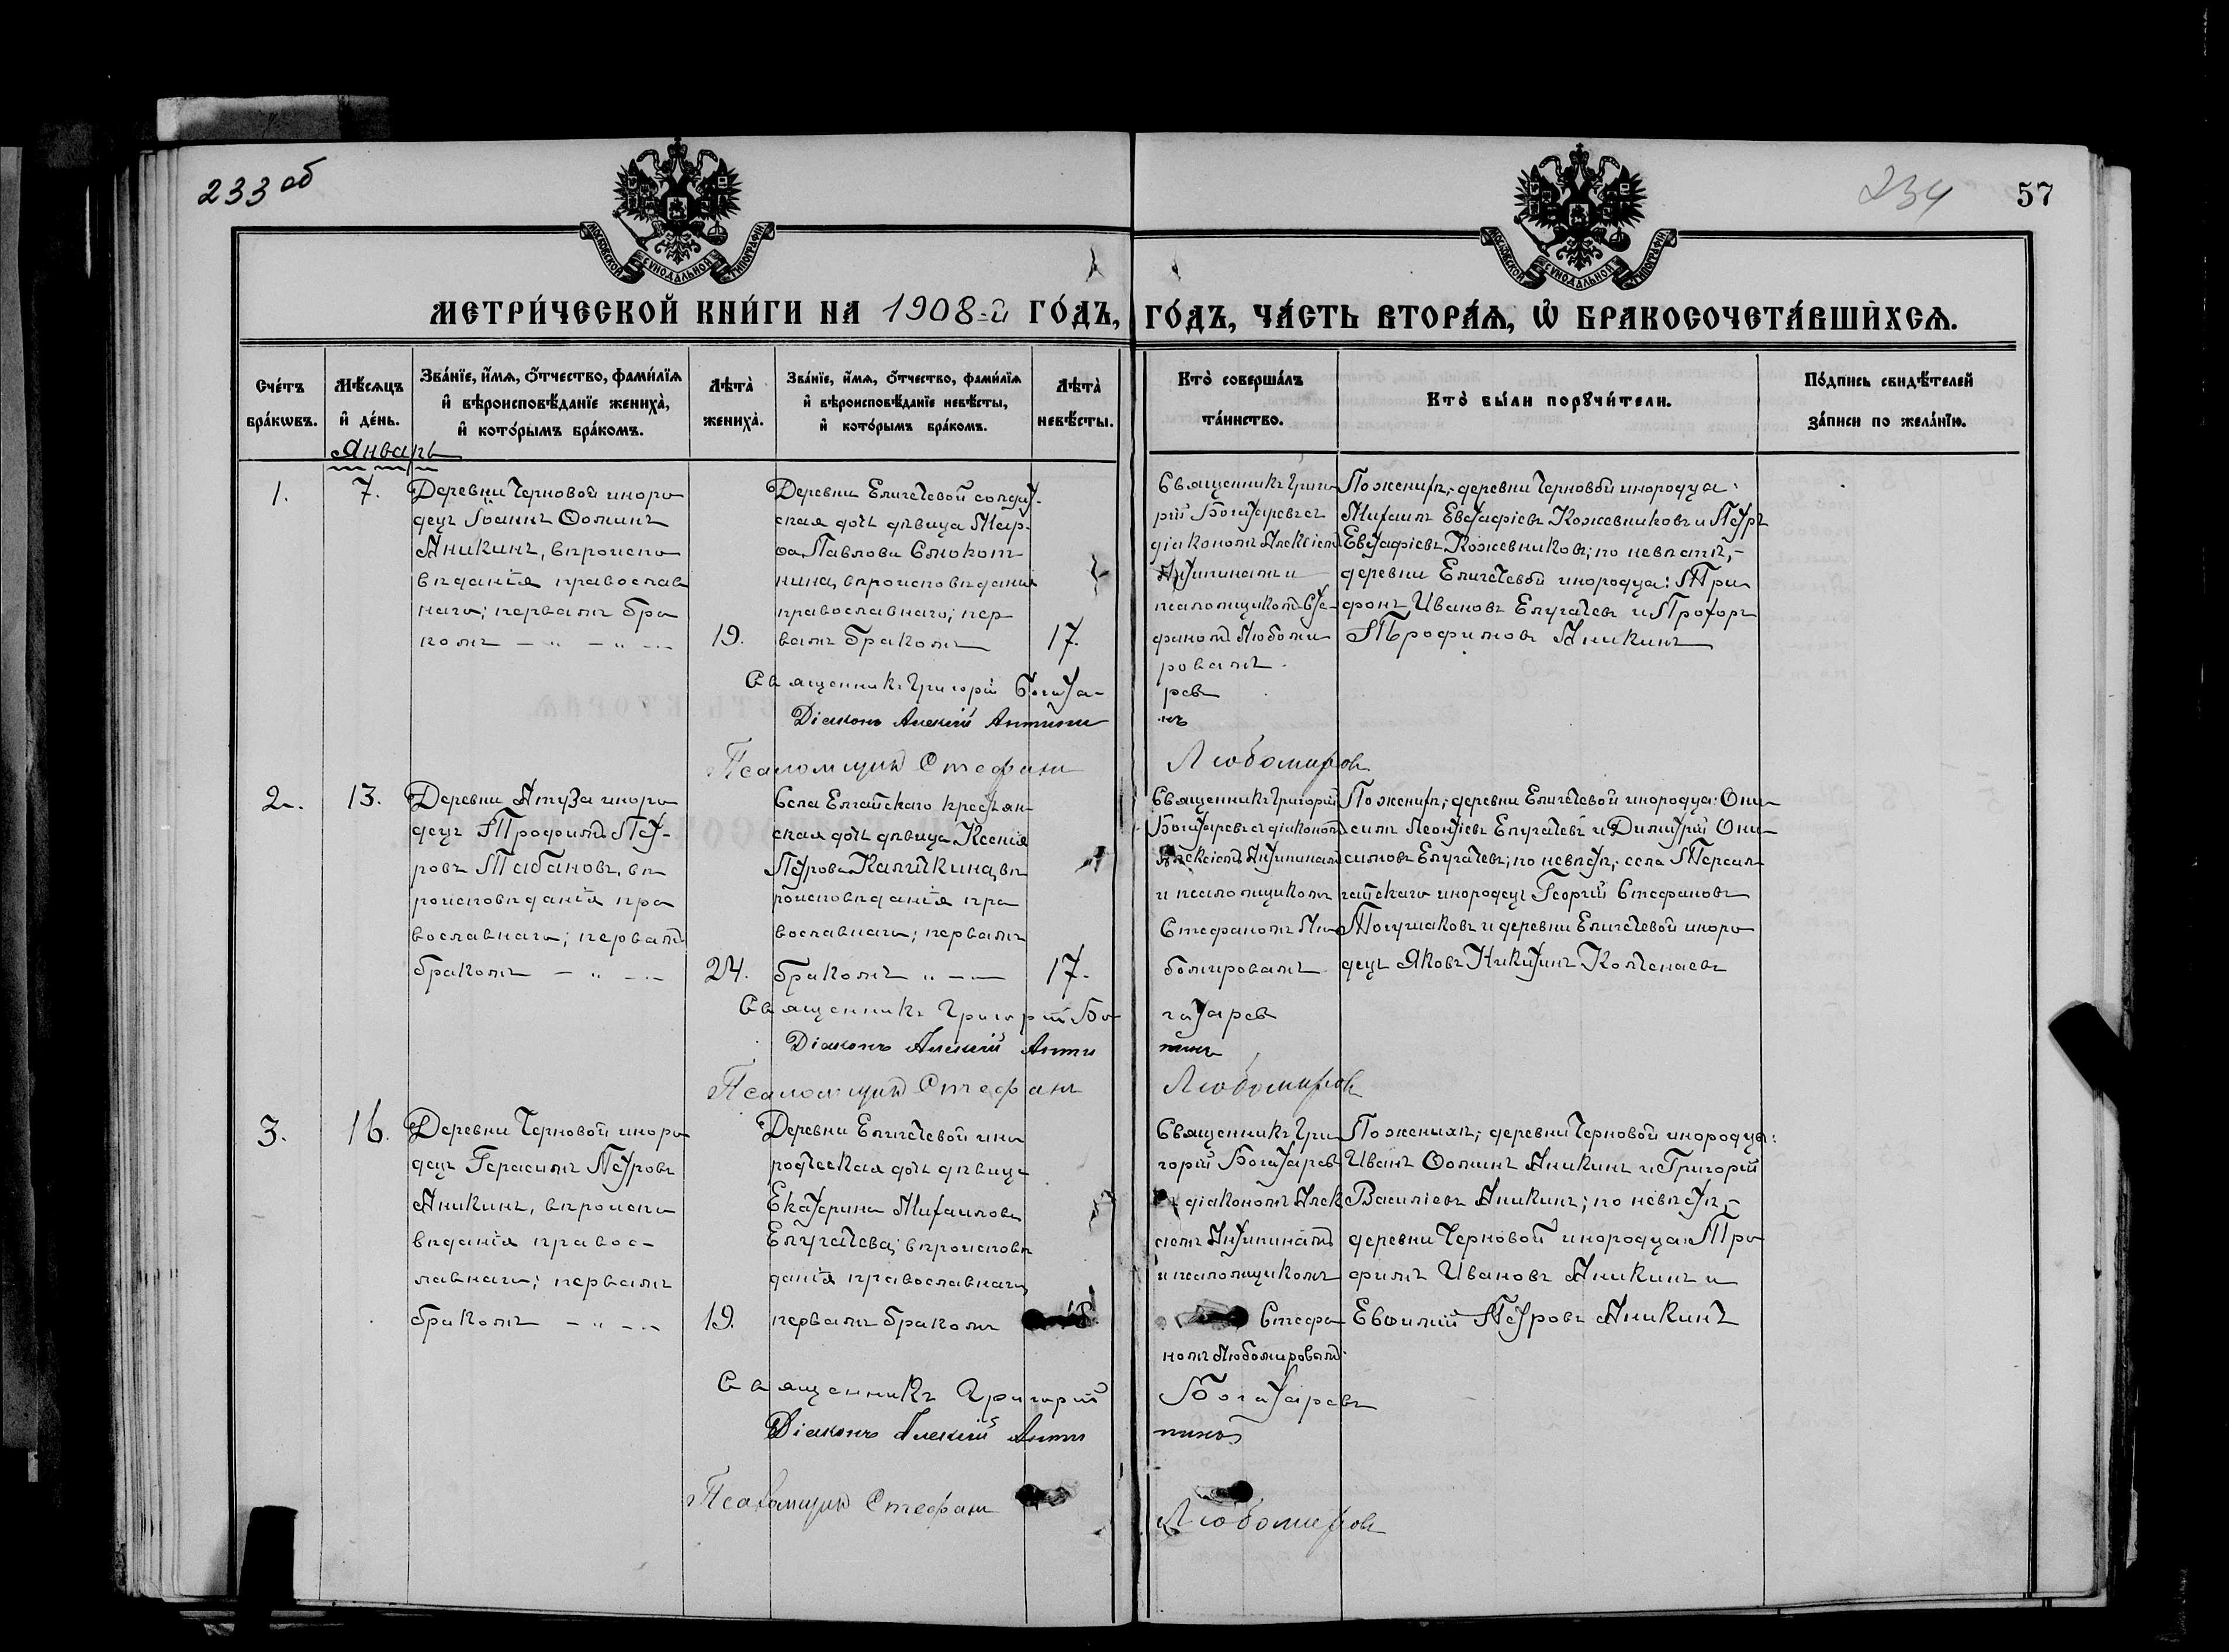 233 об
234
57
МОСКОВСКОЙ СѴНОДАЛЬНОЙ ТИПОГРАФІИ
МОСКОВСКОЙ СѴНОДАЛЬНОЙ ТИПОГРАФІИ
МЕТРИ́ЧЕСКОЙ КНИ́ГИ НА 1908-й ГО́ДЪ,
ГО́ДЪ, ЧА́СТЬ ВТОРА́Ѧ, Ѡ҆ БРАКОСОЧЕТА́ВШИХСѦ.
Сче́тъ
бра́кѡвъ.
Мѣ́сѧцъ
и҆ де́нь.
Зва́нїе, и҆́мѧ, о҆́тчество, фами́лїѧ
и҆ вѣроисповѣ́данїе жениха̀,
и҆ кото́рымъ бра́комъ.
Лѣта̀
жениха̀.
Зва́нїе, и҆́мѧ, о҆́тчество, фами́лїѧ
и҆ вѣроисповѣ́данїе невѣ́сты,
и҆ кото́рымъ бра́комъ.
Лѣта̀
невѣ́сты.
Кто̀ соверша́лъ
та́инство.
Кто̀ бы́ли порꙋчи́тели.
По́дпись свидѣ́телей
за́писи по жела́нїю.
Январь
1.
7.
Деревни Черновой иноро
децъ Іоаннъ Ѳоминъ
Аникинъ, вѣроиспо
вѣданія православ
наго; первымъ бра
комъ
19.
Деревни Елигачевой солдат-
ская дочь дѣвица Мар-
ѳа Павлова
нина, вѣроисповѣданія
православнаго; пер
вымъ бракомъ
17.
Священникъ Григо
рій Богатаревъ съ
діакономъ Алексіемъ
Антипинымъ и
псаломщикомъ Сте-
фаномъ Любоми
ровымъ.
По женихѣ, деревни Черновой инородца:
Михаилъ Евстафіевъ Кожевниковъ и Петръ
Евстафіевъ Кожевниковъ; по невѣстѣ,-
деревни Елигачевой инородца: Три
фонъ Ивановъ Елугачевъ и Прохоръ
Трофимовъ Аникинъ
Священникъ Григорій Богата-
ревъ
Діаконъ Алексій Антипи
нъ
Псаломщикъ Стефанъ
Любомировъ
2.
13.
Деревни Атуза иноро
децъ Трофимъ Пет-
ровъ Табановъ, вѣ
роисповѣданія пра
вославнаго; первымъ
бракомъ
24.
Села Елгайскаго крестьян-
ская дочь дѣвица Ксенія
Петрова вѣ
роисповѣданія пра
вославнаго; первымъ
бракомъ
17.
Священникъ Григорій
Богатаревъ съ діакономъ
Алексіемъ Антипинымъ
и псаломщикомъ
Стефаномъ Лю
бомировымъ
По женихѣ, деревни Елигачевой инородца: Они
симъ Леонтіевъ Елугачевъ и Димитрій Они-
симовъ Елугачевъ; по невѣстѣ,- села
гайскаго инородецъ Георгій Стефановъ
и деревни Елигачевой иноро
децъ Яковъ Никитинъ
Священникъ Григорій Бо-
гатаревъ
Діаконъ Алексій Анти
пинъ
Псаломщикъ Стефанъ
Любомировъ
3.
16.
Деревни Черновой иноро
децъ Герасимъ Петровъ
Аникинъ, вѣроиспо
вѣданія правос-
лавнаго; первымъ
бракомъ
19.
Деревни Елигачевой ино
родческая дочь дѣвица
Екатерина Михаилова
Елугачева; вѣроисповѣ
данія православнаго,
первымъ бракомъ
Священникъ Гри
горій Богатаревъ
съ діакономъ Алек
сіемъ Антипинымъ
и псаломщикомъ
Стефа
номъ Любомировымъ.
По женихѣ; деревни Черновой инородцы:
Иванъ Ѳоминъ Аникинъ и Григорій
Василіевъ Аникинъ; по невѣстѣ,-
деревни Черновой инородца: Тро
фимъ Ивановъ Аникинъ и
Евѳимій Петровъ Аникинъ
Священникъ Григорій
Богатаревъ
Діаконъ Алексій Анти
пинъ
Псаломщикъ Стефанъ
Любомировъ